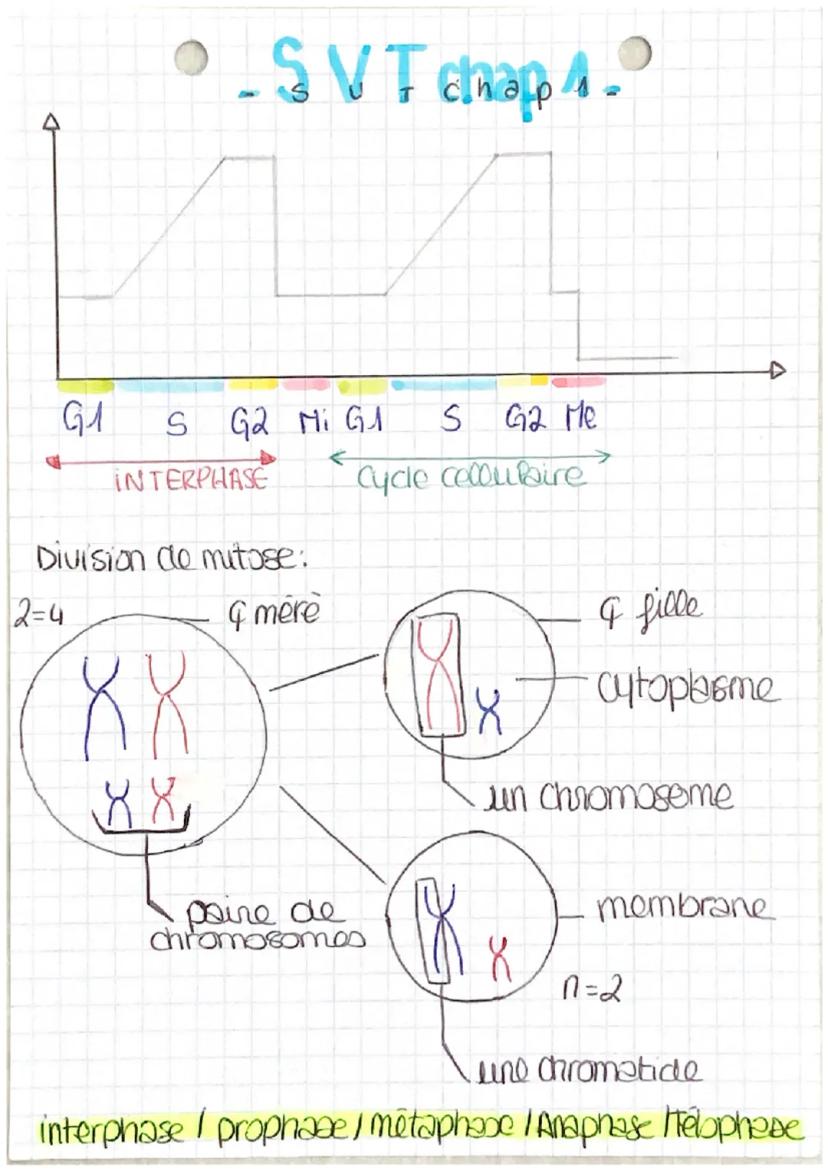 - SVT chap 1. -
- S V T chap 1 -
G1 S G2 Mi G1 S G2 Me
INTERPHASE cycle cellulaire
Division de mitose:
2=4 ç mère ç fille
cytoplasme
un chromosome
paire de
chromosomes
membrane
n=2
une chromatide
interphase / prophase / métaphase / Anaphase / Télophase